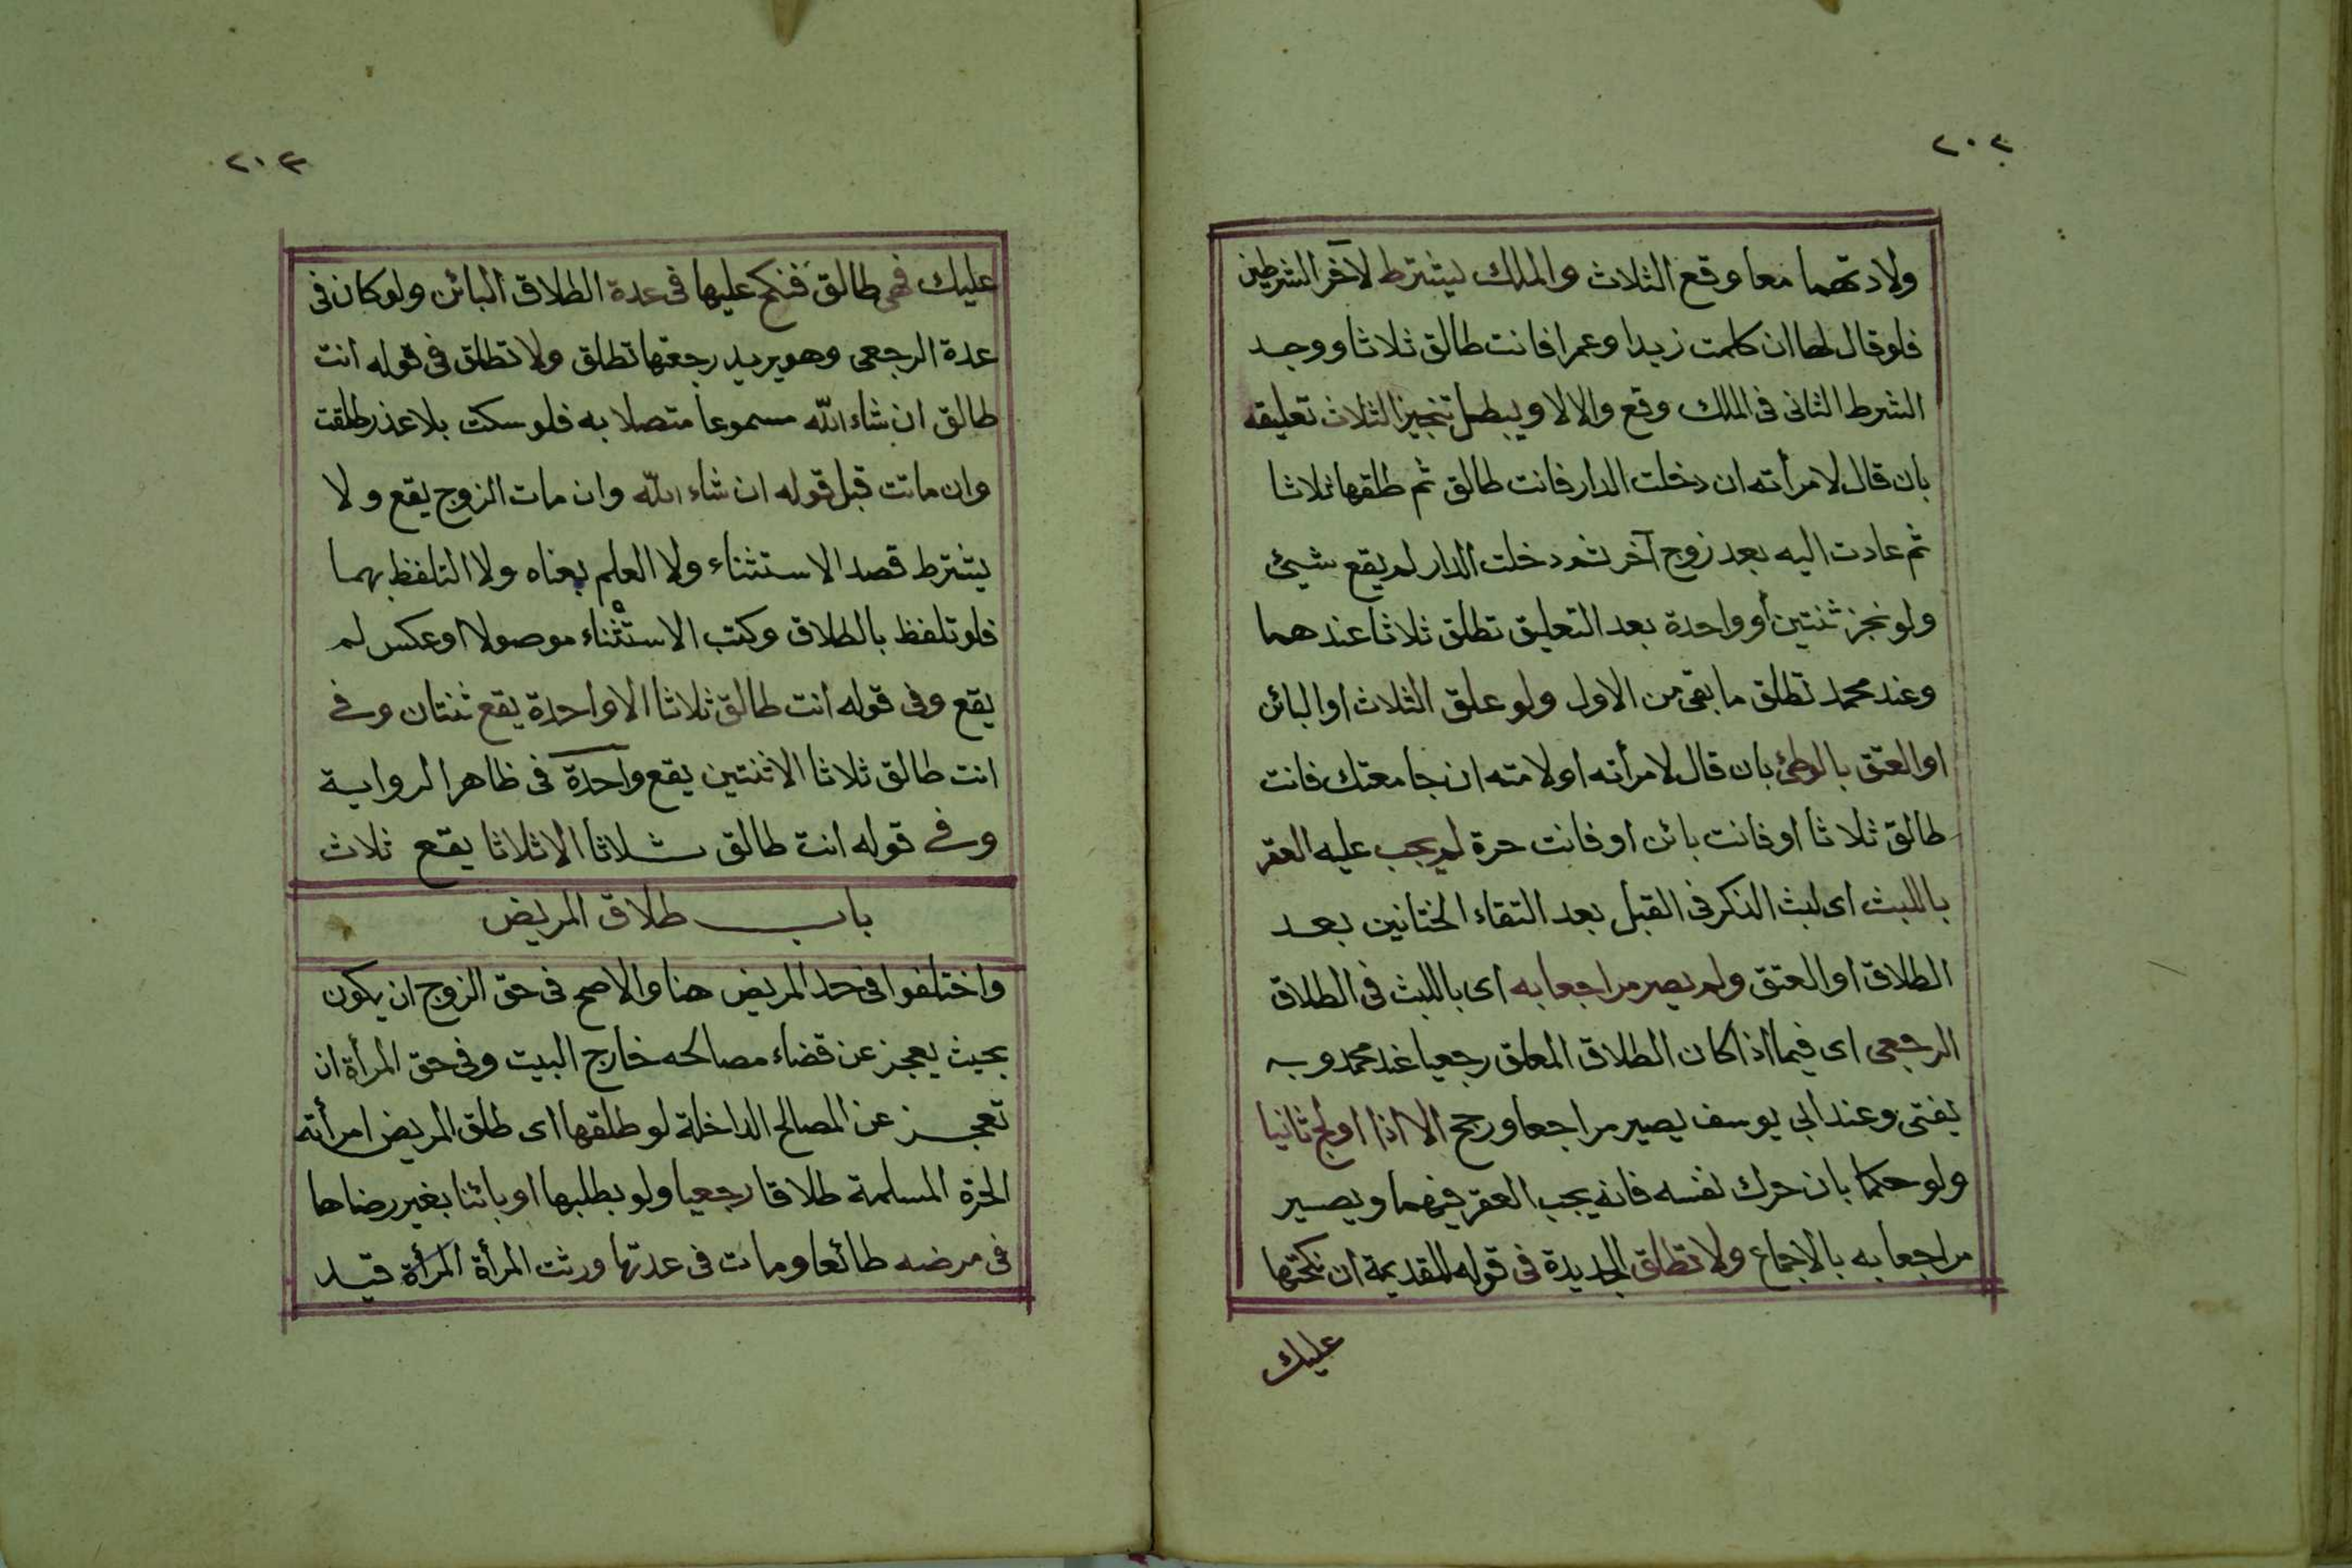 ٢٠٢
ولادتهما معا وقع الثلاث والملك يشترط لآخر الشرطين
فلو قال لها ان كلمت زيدا وعمرا فانت طالق ثلاثا ووجد
الشرط الثانى فى الملك وقع والا لا ويبطل تنجيز الثلاث تعليقه
بان قال لامرأته ان دخلت الدار فانت طالق ثم طلقها ثلاثا
ثم عادت اليه بعد زوج آخر ثم دخلت الدار لم يقع شيئ
ولو نجز ثنتين أو واحدة بعد التعليق تطلق ثلاثا عندهما
وعند محمد تطلق ما بقى من الاول ولو علق الثلاث او البائن
او العتق بالوطئ بان قال لامرأته او لامته ان جامعتك فانت
طالق ثلاثا او فانت بائن او فانت حرة لم يجب عليه العقر
باللبث اى لبث الذكر فى القبل بعد التقاء الختانين بعد
الطلاق او العتق ولم يصير مراجعا به اى باللبث فى الطلاق
الرجعى اى فيما اذا كان الطلاق المعلق رجعيا عند محمد وبه
يفتى وعند ابي يوسف يصير مراجعا ورجح الا اذا اولج ثانيا
ولو حكما بان حرك نفسه فانه يجب العقر فيهما ويصير
مراجعا به بالاجماع ولا تطلق الجديدة فى قوله للقديمة ان نكحتها
عليك
٢٠٣
عليك فهى طالق فنكح عليها فى عدة الطلاق البائن ولو كان فى
عدة الرجعى وهو يريد رجعتها تطلق ولا تطلق فى قوله انت
طالق ان شاء الله مسموعا متصلا به فلو سكت بلا عذر طلقت
وان ماتت قبل قوله ان شاء الله وان مات الزوج يقع ولا
يشترط قصد الاستثناء ولا العلم بمعناه ولا التلفظ بهما
فلو تلفظ بالطلاق وكتب الاستثناء موصولا او عكس لم
يقع وفى قوله انت طالق ثلاثا الا واحدة يقع ثنتان وفى
انت طالق ثلاثا الا ثنتين يقع واحدة فى ظاهر الرواية
وفى قوله انت طالق ثلاثا الا ثلاثا يقع ثلاث
باب طلاق المريض
واختلفوا فى حد المريض هنا والاصح فى حق الزوج ان يكون
بحيث يعجز عن قضاء مصالحه خارج البيت وفى حق المرأة ان
تعجز عن المصالح الداخلة لو طلقها اى طلق المريض امرأته
الحرة المسلمة طلاقا رجعيا ولو بطلبها او بائنا بغير رضاها
فى مرضه طائعا ومات فى عدتها ورثت المرأة المرأة قيد